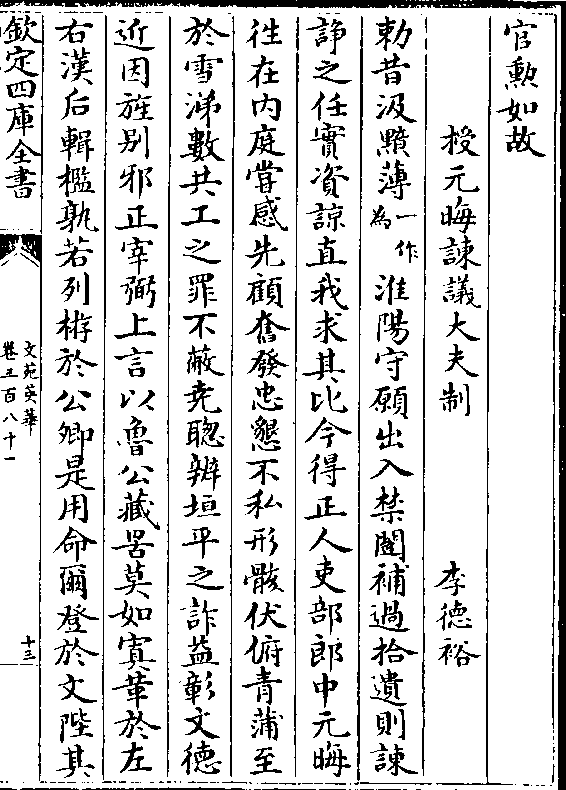 官勲如故
授元晦諫議大夫制　李德裕
勅昔汲黯薄一作為淮陽守願出入禁闥補過拾遺則諫
諍之任實資諒直我求其比今得正人吏部郎中元晦
徃在内庭嘗感先顧奮發忠懇不私形骸伏俯青蒲至
於雪涕數共工之罪不蔽堯聰辨垣平之詐益彰文德
近因旌别邪正宰弼上言以魯公藏罟莫如寘革於左
右漢后輯檻孰若列㭊於公卿是用命爾登於文陛其
欽定四庫全書
文苑英華
卷三百八十一
十三